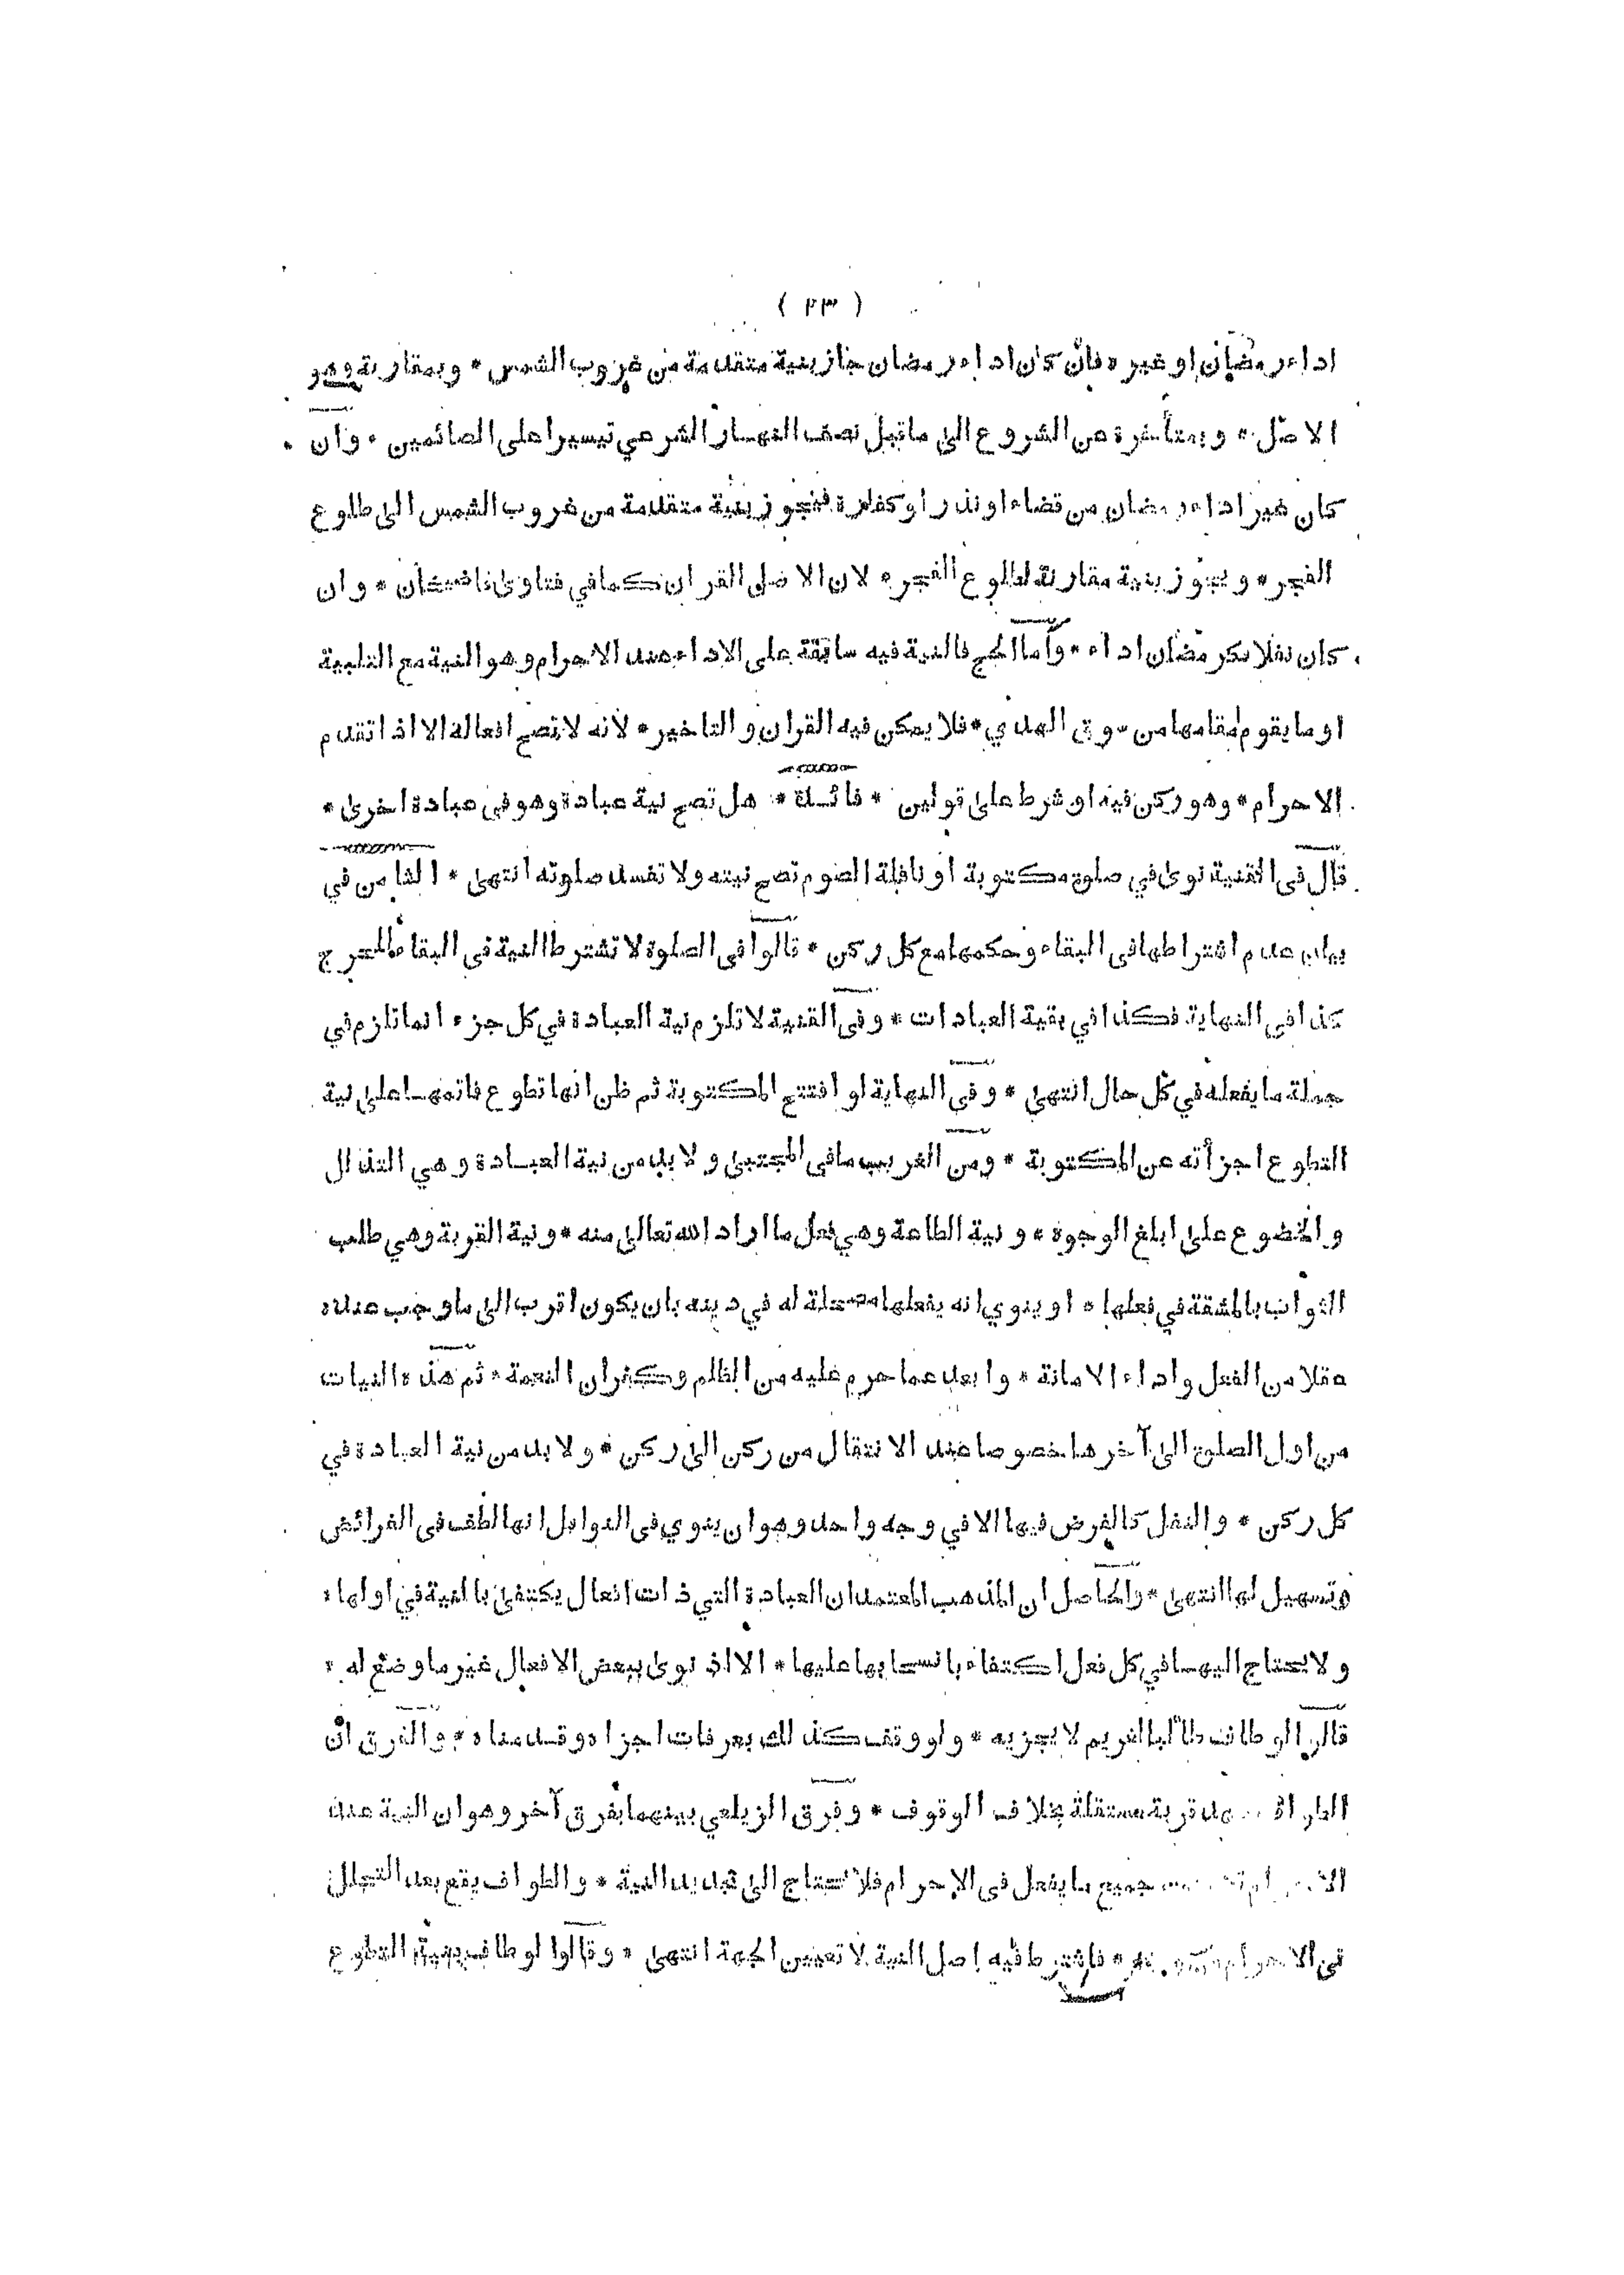 ( ٢٣ )
اداء رمضان او غيره فان كان اداء رمضان جاز بنية متقدمة من غروب الشمس * وبمقارنة وهو
الاصل * وبمتأخرة عن الشروع الى ما قبل نصف النهار الشرعي تيسيرا على الصائمين * وان
كان غير اداء رمضان من قضاء او نذر او كفارة فيجوز بنية متقدمة من غروب الشمس الى طلوع
الفجر * ويجوز بنية مقارنة لطلوع الفجر * لان الاصل القران كما في فتاوى قاضيخان * وان
كان نفلا فكرمضان اداء * وأما الحج فالنية فيه سابقة على الاداء عند الاحرام وهو النية مع التلبية
او ما يقوم مقامها من سوق الهدي * فلا يمكن فيه القران والتاخير * لأنه لا تصح افعاله الا اذا تقدم
الاحرام * وهو ركن فيه او شرط على قولين * فائدة * هل تصح نية عبادة وهو في عبادة اخرى *
قال في القنية نوى في صلوة مكتوبة او نافلة الصوم تصح نيته ولا تفسد صلوته انتهى * الثامن في
بيان عدم اشتراطها في البقاء وحكمها مع كل ركن * قالوا في الصلوة لا تشترط النية في البقاء للحرج
كذا في النهاية فكذا في بقية العبادات * وفي القنية لا تلزم نية العبادة في كل جزء انما تلزم في
جملة ما يفعله في كل حال انتهى * وفي النهاية لو افتتح المكتوبة ثم ظن انها تطوع فاتمها على نية
التطوع اجزأته عن المكتوبة * ومن الغريب ما في المجتبى ولا بد من نية العبادة وهي التذلل
والخضوع على ابلغ الوجوه * ونية الطاعة وهي فعل ما اراد الله تعالى منه * ونية القربة وهي طلب
الثواب بالمشقة في فعلها * او ينوي انه يفعلها مصلحة له في دينه بان يكون اقرب الى ما وجب عنده
عقلا من الفعل واداء الامانة * وابعد عما حرم عليه من الظلم وكفران النعمة * ثم هذه النيات
من اول الصلوة الى آخرها خصوصا عند الانتقال من ركن الى ركن * ولا بد من نية العبادة في
كل ركن * والنفل كالفرض فيها الا في وجه واحد وهو ان ينوي في النوافل انها لطف في الفرائض
وتسهيل لها انتهى * والحاصل ان المذهب المعتمد ان العبادة التي ذات افعال يكتفى بالنية في اولها *
ولا يحتاج اليها في كل فعل اكتفاء بانسحابها عليها * الا اذا نوى ببعض الافعال غير ما وضع له *
قالوا لو طاف طالبا لغريم لا يجزيه * ولو وقف كذلك بعرفات اجزاه وقدمناه * والفرق ان
الطواف عهد قربة مستقلة بخلاف الوقوف * وفرق الزيلعي بينهما بفرق آخر وهو ان النية عند
الاحرام جميع ما يفعل في الاحرام فلا تحتاج الى تجديد النية * والطواف يقع بعد التحلل
في الاحرام من وجه * فاشترط فيه اصل النية لا تعيين الجهة انتهى * وقالوا لو طاف بنية التطوع